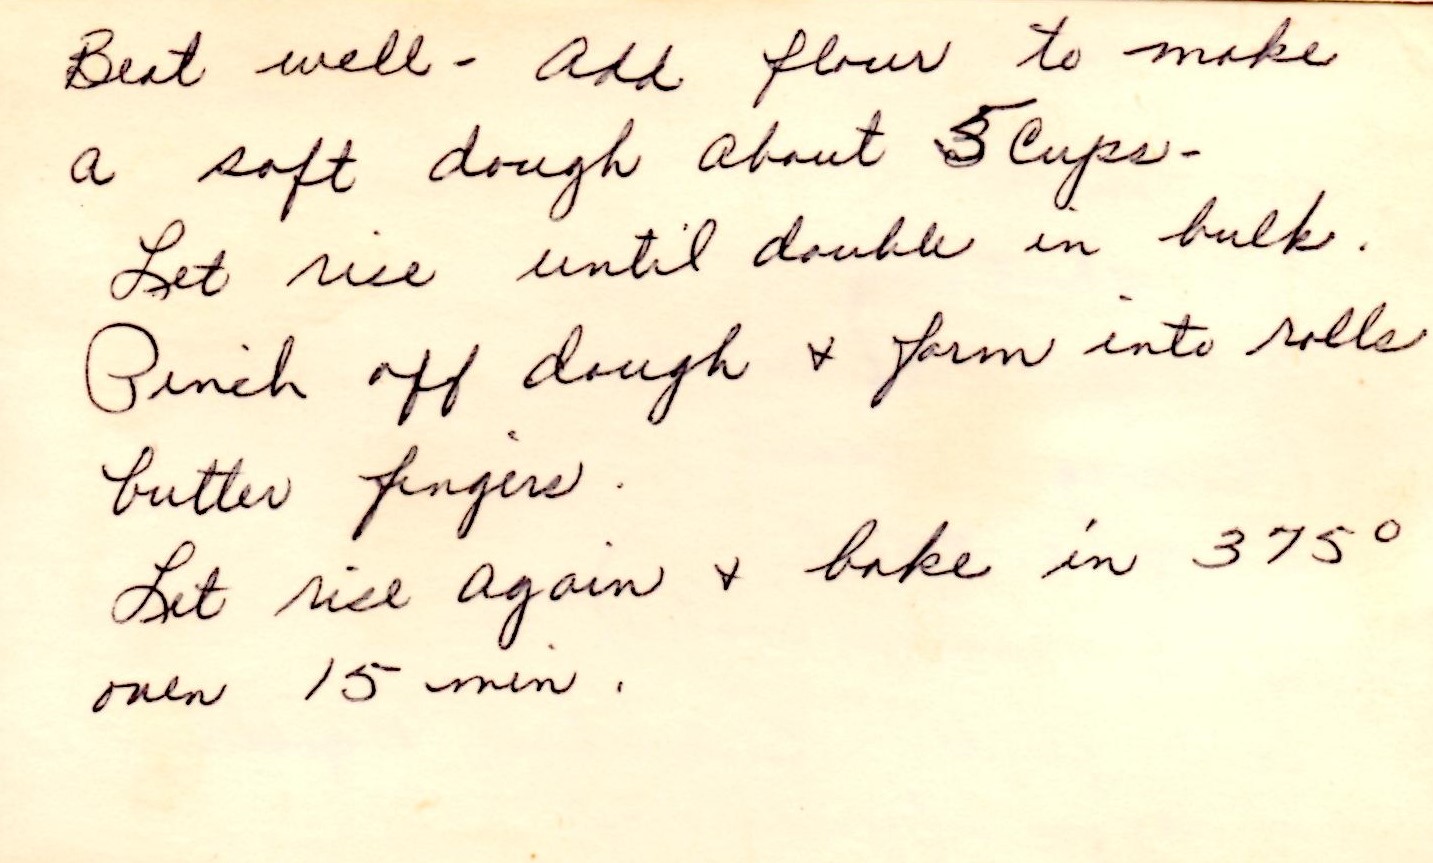 Beat well - Add flour to make
a soft dough about 5 Cups -
Let rise until double in bulk.
Pinch off dough & form into rolls
butter fingers.
Let rise again & bake in 375°
oven 15 min.